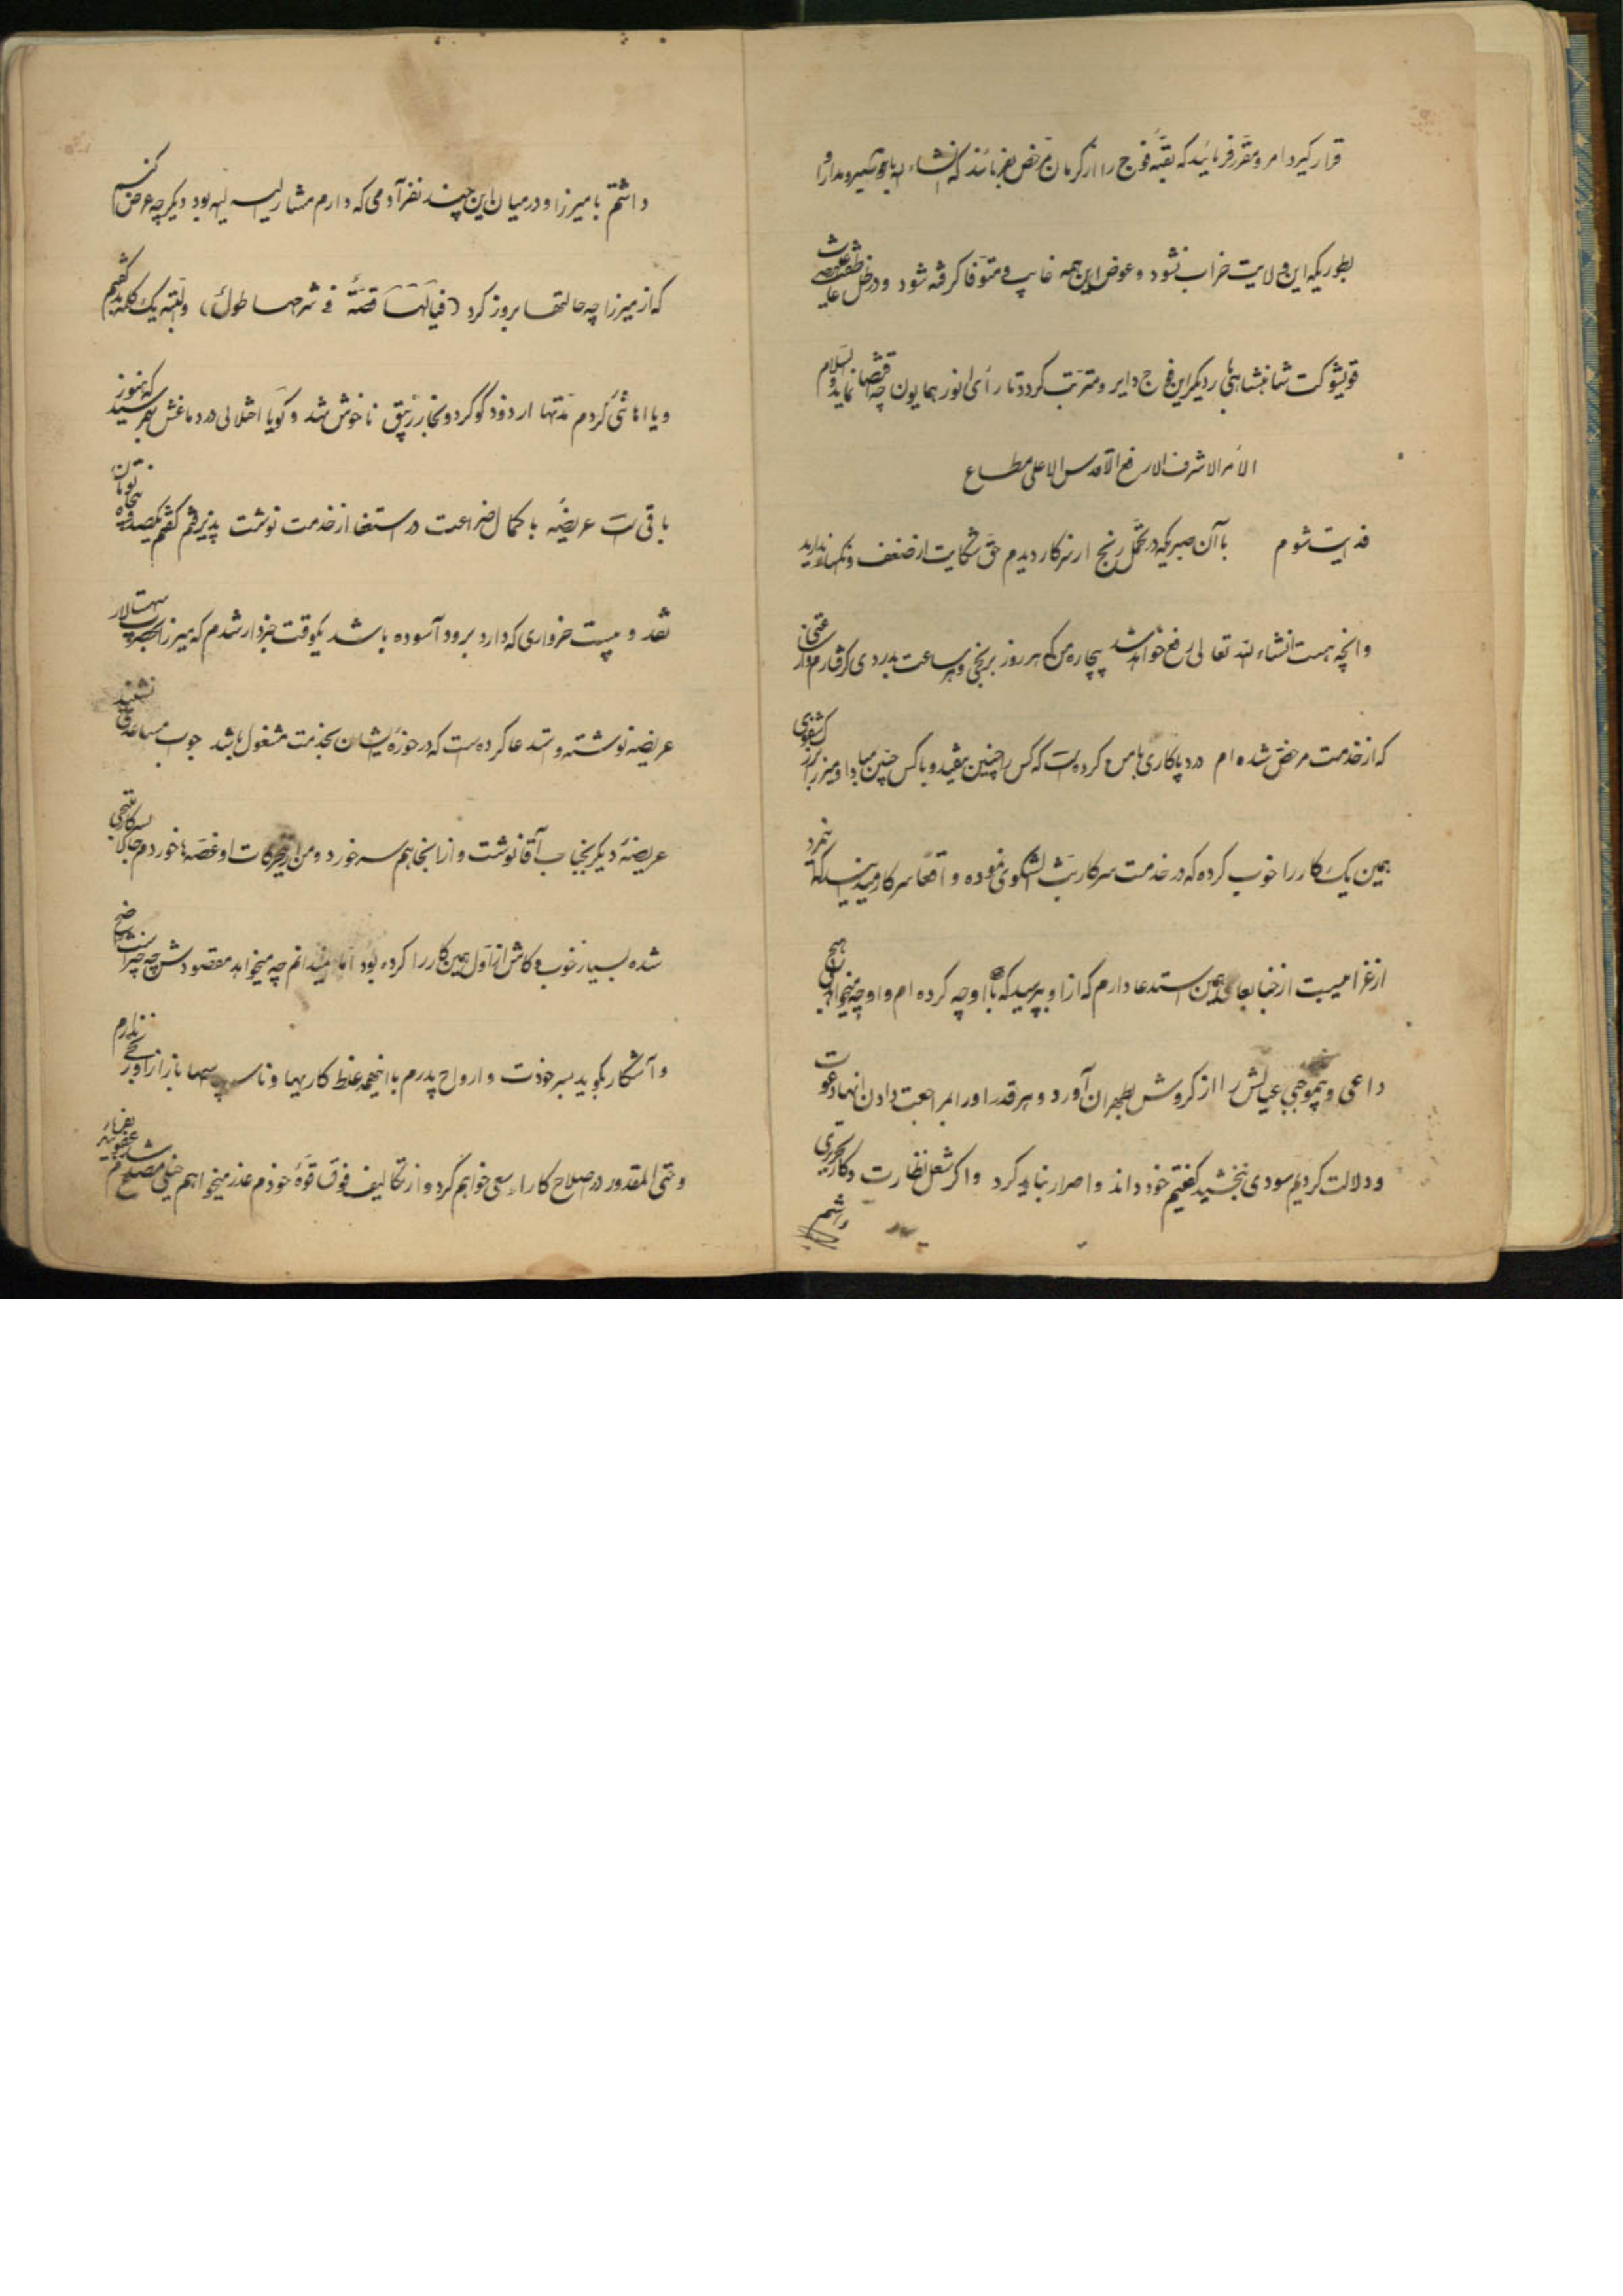 قرار گیرد امر و مقرر فرمائید که بقیهٔ فوج را از کرمان مرخص بفرمایند که انشاء الله با تدبیر و مدارا و
بطوریکه این ولایت خراب نشود و عوض این همه غایب و متوفا گرفته شود و در ظل
قویشوکت شاهنشاهی بار دیگر این فوج دایر و مترتب گردد تا رأی انور همایون چه اقتضا نماید والسلام
الامر الاشرف الارفع الاقدس الاعلی مطاع
فدایت شوم با آن صبریکه در تحمل رنج از سرکار دیدم حق شکایت از ضعف و تکسر ندارید
و انچه هست انشاء الله تعالی رفع خواهد شد بیچاره من که هر روز برنجی و هر ساعت بدردی گرفتارم و از
که از خدمت مرخص شده ام در دپاکاری با من کرده است که کس را چنین میفید و با کس چنین مبادا و میرزا
همین یک کار را خوب کرده که در خدمت سرکار بث الشکوی نموده و اقعا سرکار میدانید که
از غرامیست از جنابعالی همین استدعا دارم که از او بپرسید که با او چه کرده ام و او چه میخواهد
داعی و بیموجبی عیالش را از کروش بطهران آورد و هر قدر او را بمراجعت دادن انها دعوت
و دلالت کردیم سودی نبخشید گفتیم خود داند و اصرار نباید کرد و اگر شغل نظارت و کار تحریری
داشتم
داشتم با میرزا و در میان این چند نفر آدمی که دارم مشار الیه بود دیگر چه عرض کنم
که از میرزا چه حالتها بروز کرد (فیالها قصة فی شرحها طول) والبته یک کلمه بدهم گفتم
و یا اها شی کردم مدتها از دود گوگرد و بخار زیبق ناخوش شد و گویا اختلالی در دماغش بهم رسید که هنوز
باقی است عریضه با کمال ضراعت در استعفا از خدمت نوشت پذیرفتم گفتم یکصد و پنجاه تومان
نقد و بیست خرواری که دارد برود آسوده باشد یکوقت خبردار شدم که میرزا بحضرت سپهسالار
عریضه نوشته و استدعا کرده است که در حوزهٔ ایشان بخدمت مشغول باشد جواب مساعدتی نشنید
عریضهٔ دیگر بجناب آقا نوشت و از انجا هم سر خورد و من از حرکات او غصه ها خوردم حالا بسرکار ملتجی
شده بسیار خوب و کاش از اول همین کار را کرده بود اما نمیدانم چه میخواهد مقصودش چه چیز است واضح
و آشکار بگوید بسر خودت و ارواح پدرم با اینهمه غلط کاریها و ناسپاسیها باز از او رنجی ندارم
و حتی المقدور در اصلاح کار او سعی خواهم کرد و از تکالیف فوق قوهٔ خودم عذر میخواهم خیلی مصدع شدم عفو بفرمائید